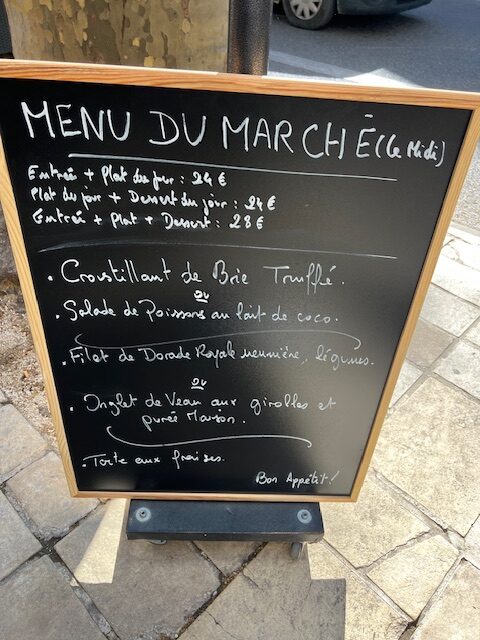 MENU DU MARCHÉ (le Midi)
Entrée + Plat du jour : 24 €
Plat du jour + Dessert du jour : 24 €
Entrée + Plat + Dessert : 28 €
. Croustillant de Brie Truffé.
ou
. Salade de Poissons au lait de coco.
. Filet de Dorade Royale meunière, légumes.
ou
. Onglet de Veau aux girolles et
purée Maison.
. Tarte aux fraises.
Bon Appétit !